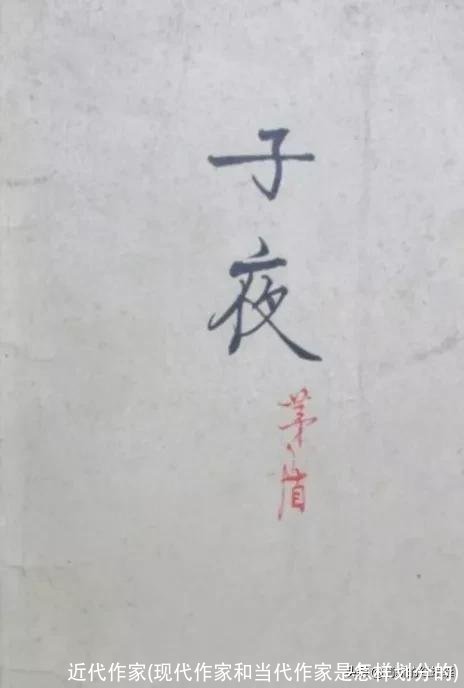 子夜
茅盾
近代作家(现代作家和当代作家是怎样划分的)